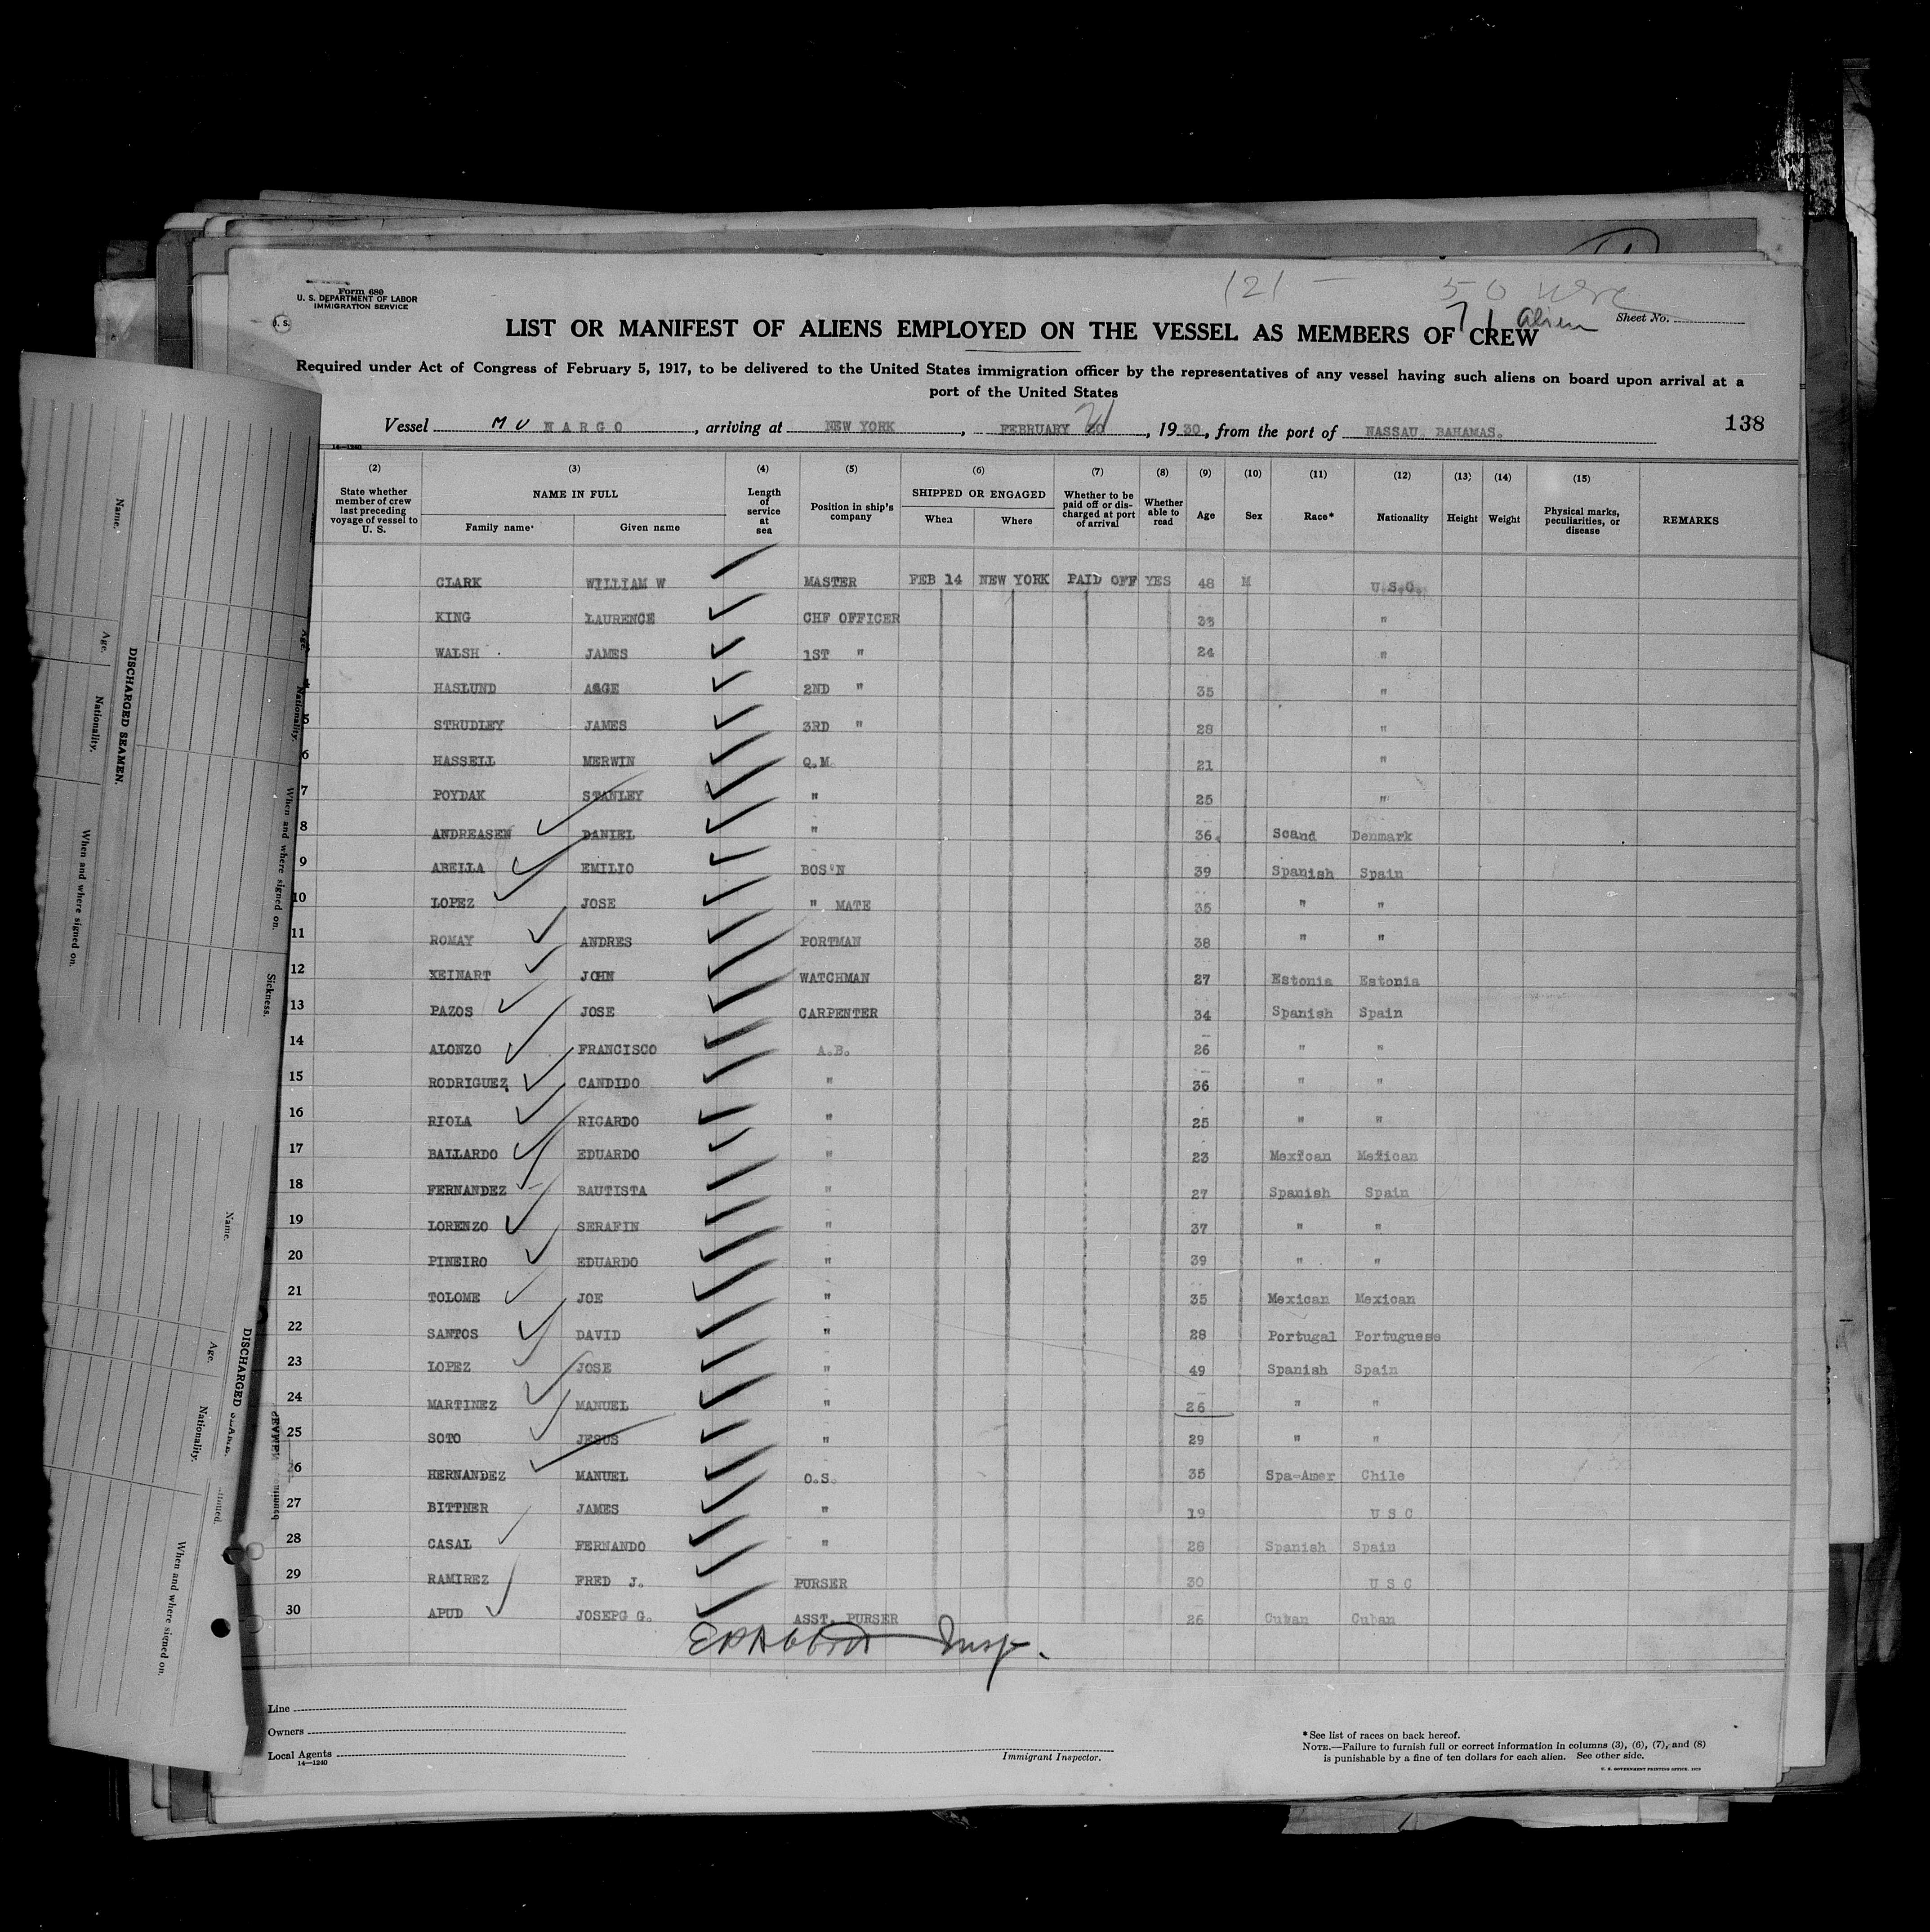 121 — 50 usc
71 Alien
Form 680
U. S. DEPARTMENT OF LABOR
IMMIGRATION SERVICE
U. S.
Sheet No.
LIST OR MANIFEST OF ALIENS EMPLOYED ON THE VESSEL AS MEMBERS OF CREW
Required under Act of Congress of February 5, 1917, to be delivered to the United States immigration officer by the representatives of any vessel having such aliens on board upon arrival at a
port of the United States
Vessel MUNARGO, arriving at NEW YORK, FEBRUARY, 1930, from the port of NASSAU BAHAMAS.
138
14—1240
(2) (3) (4) (5) (6) (7) (8) (9) (10) (11) (12) (13) (14) (15)
State whether member of crew last preceding voyage of vessel to U. S. NAME IN FULL Family name Given name Length of service at sea Position in ship's company SHIPPED OR ENGAGED When Where Whether to be paid off or discharged at port of arrival Whether able to read Age Sex Race* Nationality Height Weight Physical marks, peculiarities, or disease REMARKS
CLARK WILLIAM W MASTER FEB 14 NEW YORK PAID OFF YES 48 M U.S.C.
KING LAURENCE CHF OFFICER 33 "
WALSH JAMES 1ST " 24 "
4 HASLUND AAGE 2ND " 35 "
5 STRUDLEY JAMES 3RD " 28 "
6 HASSELL MERWIN Q.M. 21 "
7 POYDAK STANLEY " 25 "
8 ANDREASEN DANIEL " 36. Scand Denmark
9 ABELLA EMILIO BOS'N 39 Spanish Spain
10 LOPEZ JOSE " MATE 35 " "
11 ROMAY ANDRES PORTMAN 38 " "
12 XEINART JOHN WATCHMAN 27 Estonia Estonia
13 PAZOS JOSE CARPENTER 34 Spanish Spain
14 ALONZO FRANCISCO A.B. 26 " "
15 RODRIGUEZ CANDIDO " 36 " "
16 RIOLA RICARDO " 25 " "
17 BALLARDO EDUARDO " 23 Mexican Mexican
18 FERNANDEZ BAUTISTA " 27 Spanish Spain
19 LORENZO SERAFIN " 37 " "
20 PINEIRO EDUARDO " 39 " "
21 TOLOME JOE " 35 Mexican Mexican
22 SANTOS DAVID " 28 Portugal Portuguese
23 LOPEZ JOSE " 49 Spanish Spain
24 MARTINEZ MANUEL " 26 " "
25 SOTO JESUS " 29 " "
26 HERNANDEZ MANUEL O.S. 35 Spa-Amer Chile
27 BITTNER JAMES " 19 U S C
28 CASAL FERNANDO " 28 Spanish Spain
29 RAMIREZ FRED J. PURSER 30 U S C
30 APUD JOSEPG G. ASST. PURSER 26 Cuban Cuban
Insp.
Line
Owners
Local Agents
14—1240
Immigrant Inspector.
*See list of races on back hereof.
NOTE.—Failure to furnish full or correct information in columns (3), (6), (7), and (8)
is punishable by a fine of ten dollars for each alien. See other side.
U. S. GOVERNMENT PRINTING OFFICE
DISCHARGED SEAMEN.
Name. Age. Nationality. When and where signed on.
Age. Nationality. When and where signed on. Sickness.
DISCHARGED
Name. Age. Nationality. When and where signed on.